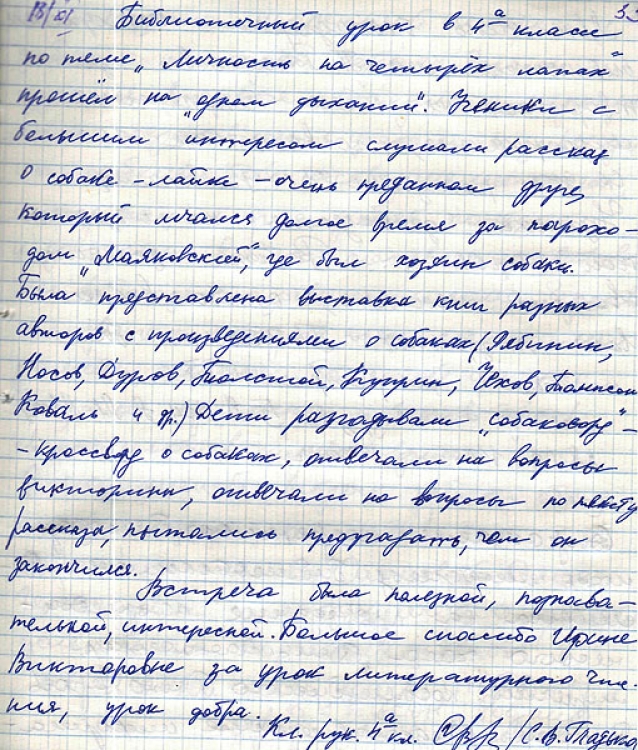 Библиотечный урок в 4а классе
по теме „Личность на четырёх лапах"
прошёл на „одном дыхании". Ученики с
большим интересом слушали рассказ
о собаке - лайке - очень преданном друге,
который мчался долгое время за парохо-
дом „Маяковский", где был хозяин собаки.
Была представлена выставка книг разных
авторов с произведениями о собаках (Рябинин,
Носов, Дуров, Толстой, Куприн, Чехов, Томпсон
Коваль и др.) Дети разгадывали „собаковорд" -
- кроссворд о собаках, отвечали на вопросы
викторины, отвечали на вопросы по тексту
рассказа, пытались предугадать, чем он
закончился.
Встреча была полезной, познава-
тельной, интересной. Большое спасибо Ирине
Викторовне за урок литературного чте-
ния, урок добра.
Кл. рук. 4а кл. /С.В.